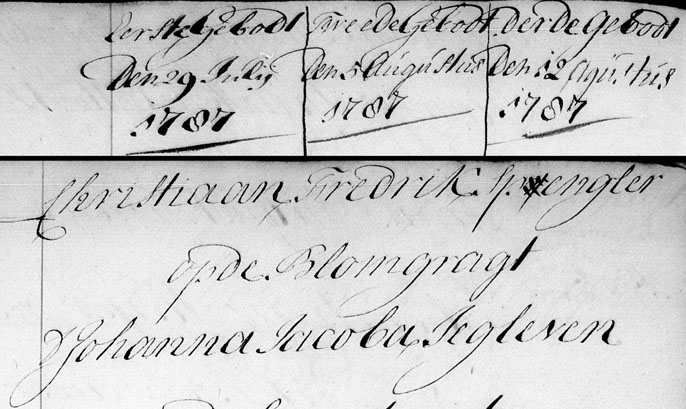 Eerste Gebodt Tweede Gebodt Derde Gebodt
Den 29 July Den 5 Augustus Den 12 Agustus
1787 1787 1787
Christiaan Fredrik Sprengler
op de Blomgragt
Johanna Jacoba Jegleven